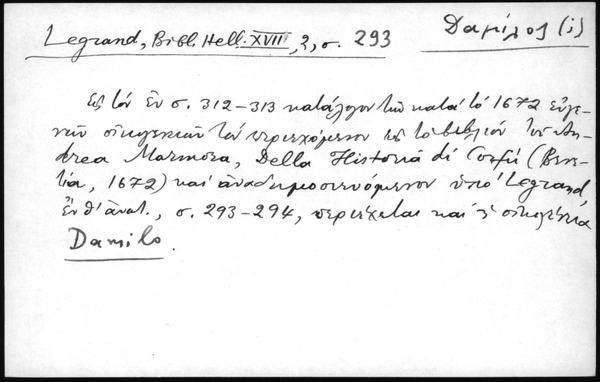 Legrand, Bibl. Hell. XVII, 2, σ. 293
Δαμίλος (ι)
Εἰς τὸν ἐν σ. 312-313 κατάλογον τῶν κατὰ τὸ 1672 εὐγε-
νῶν οἰκογενειῶν τὸν περιεχόμενον εἰς τὸ βιβλίον τοῦ An-
drea Marmora, Della Historia di Corfù (Βενε-
τία, 1672) καὶ ἀναδημοσιευόμενον ὑπὸ Legrand,
ἔνθ' ἀνωτ., σ. 293-294, περιέχεται καὶ ἡ οἰκογένεια
Damilo.